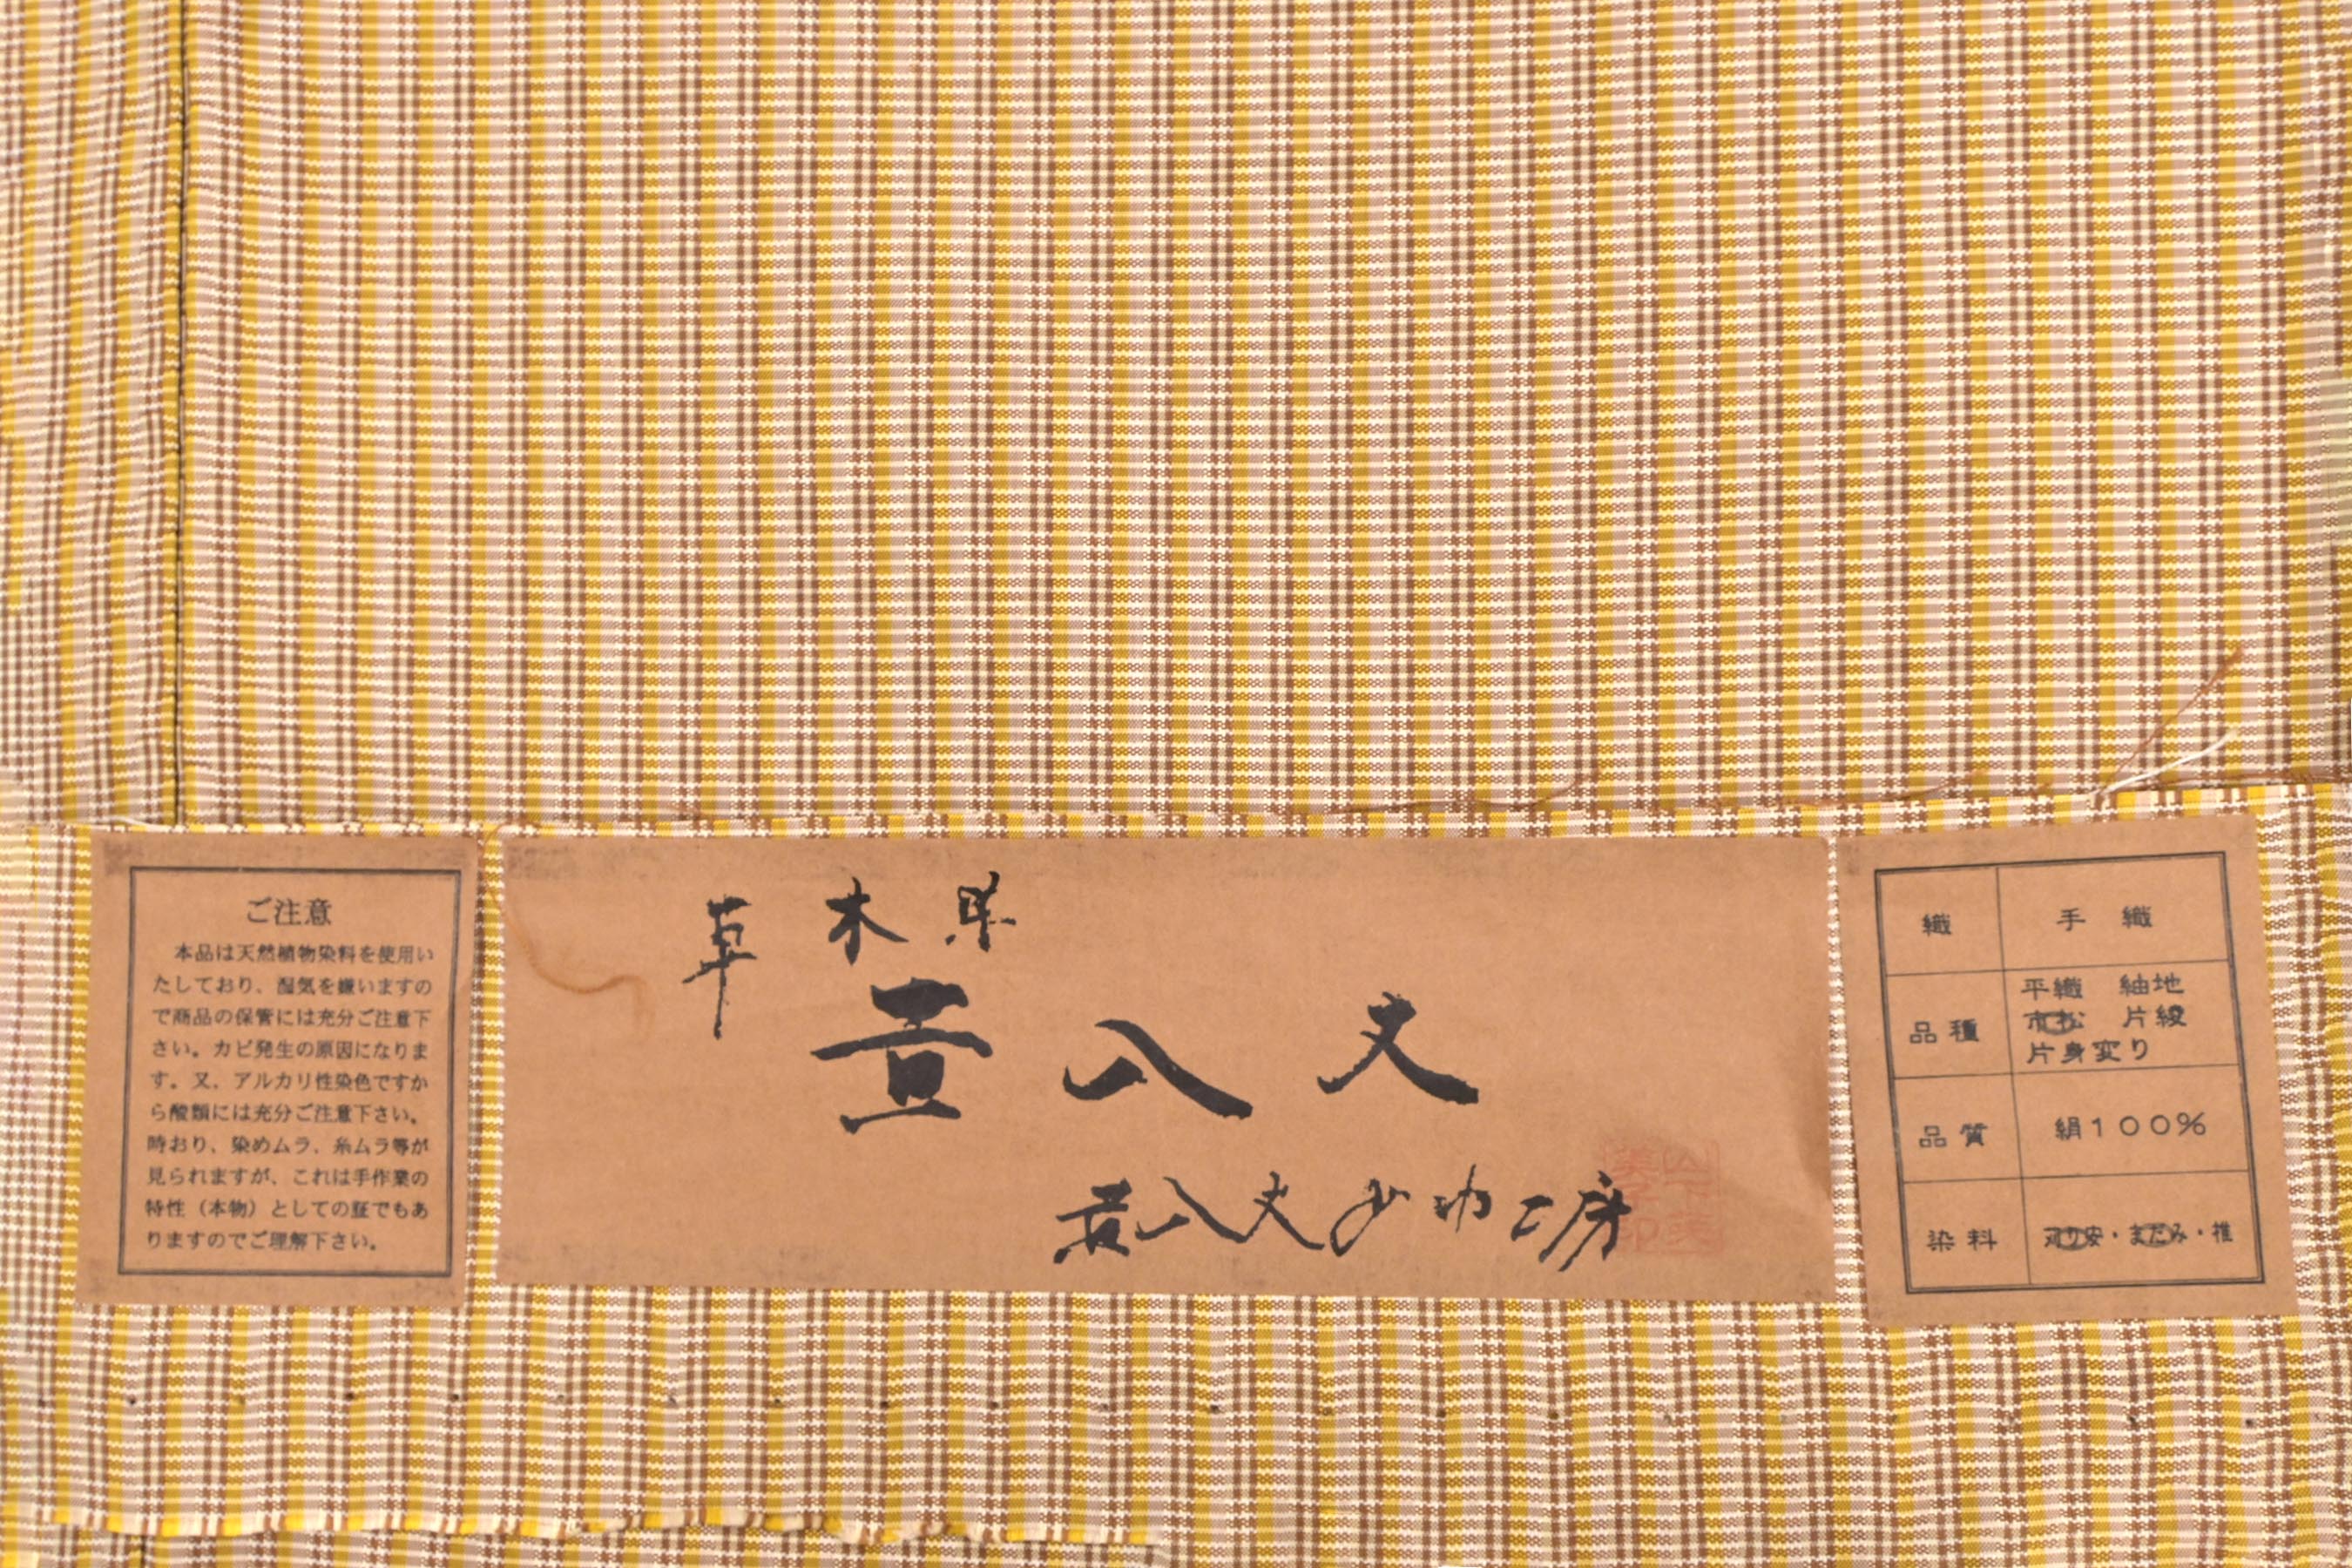 ご注意
本品は天然植物染料を使用い
たしており、湿気を嫌いますの
で商品の保管には充分ご注意下
さい。カビ発生の原因になりま
す。又、アルカリ性染色ですか
ら酸類には充分ご注意下さい。
時おり、染めムラ、糸ムラ等が
見られますが、これは手作業の
特性（本物）としての証でもあ
りますのでご理解下さい。
草木染
黄八丈
黄八丈めゆ工房
織 手織
品種 平織 紬地
市松 片綾
片身変り
品質 絹１００％
染料 刈り安・まだみ・椎